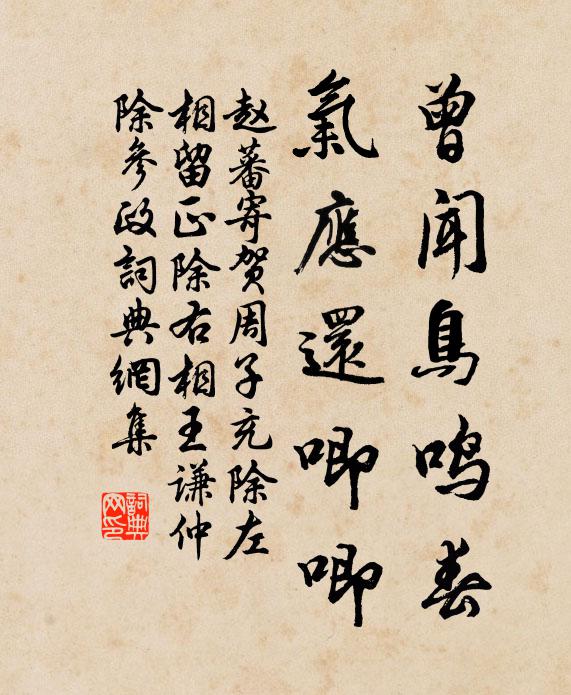 曾闻鳥鳴春
氣應還唧唧
赵蕃寄贺周子充除左
相留正除右相王谦仲
除參政詞典網集
詞典网印